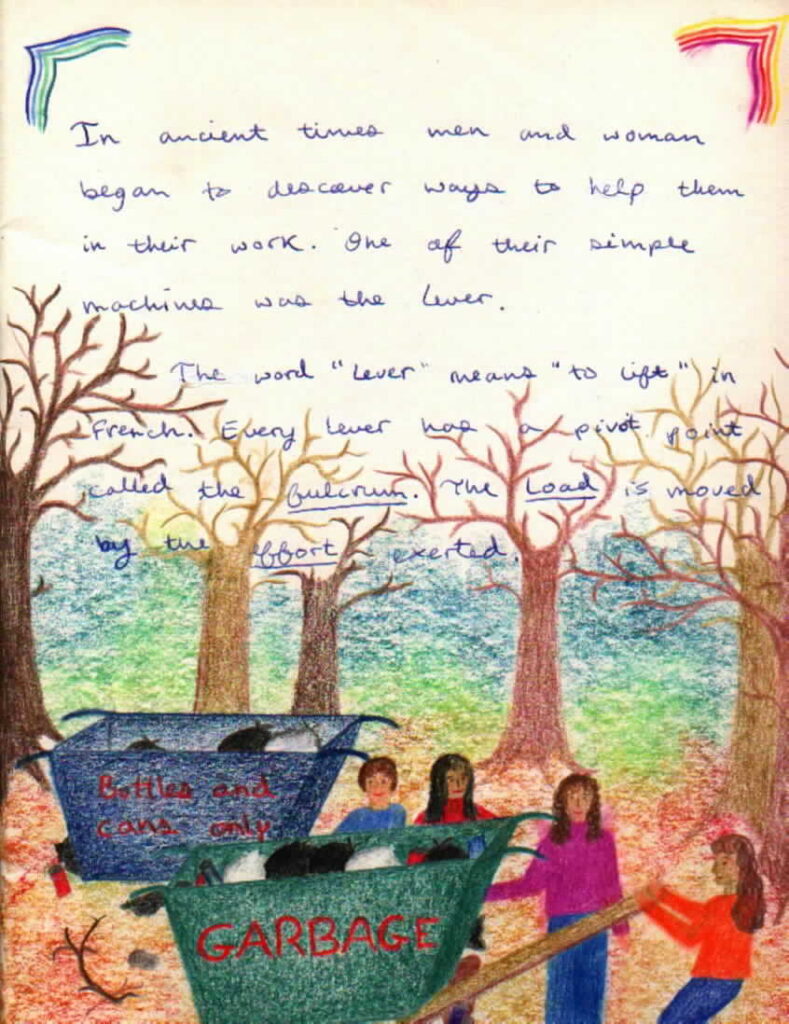 In ancient times men and woman
began to descover ways to help them
in their work. One of their simple
machines was the Lever.
The word "Lever" means "to lift" in
French. Every lever has a pivot point
called the fulcrum. The Load is moved
by the effort exerted.
Bottles and
cans only
GARBAGE